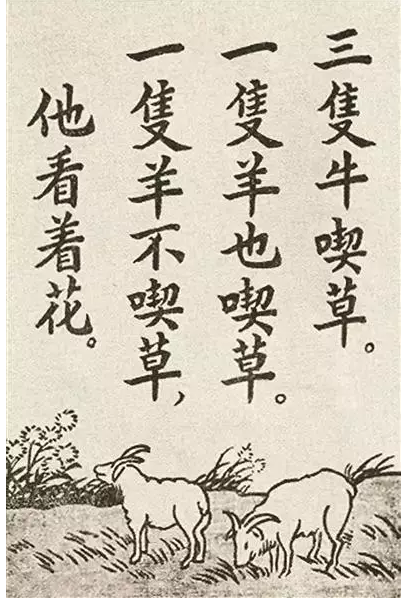 三隻牛喫草。
一隻羊也喫草。
一隻羊不喫草，
他看着花。